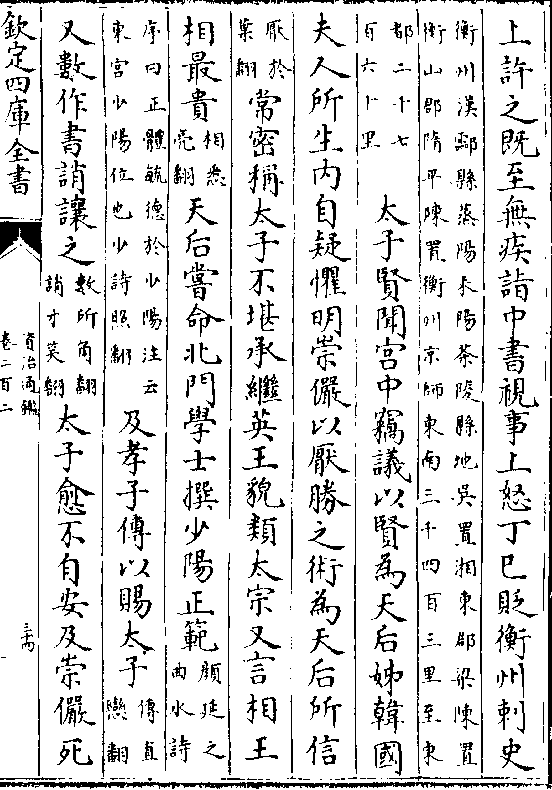 上許之既至無疾詣中書視事上怒丁巳貶衡州刺史
衡州漢酃縣蒸陽耒陽茶陵縣地吳置湘東郡梁陳置
衡山郡隋平陳置衡州京師東南三千四百三里至東
都二十七
百六十里
太子賢聞宮中竊議以賢為天后姊韓國
夫人所生内自疑懼明崇儼以厭勝之術為天后所信
厭於
葉翻
常密稱太子不堪承繼英王貌類太宗又言相王
相最貴
相悉
亮翻
天后嘗命北門學士撰少陽正範
顔延之
曲水詩
序曰正體毓德於少陽注云
東宮少陽位也少詩照翻
及孝子傳以賜太子
傳直
戀翻
又數作書誚讓之
數所角翻
誚才笑翻
太子愈不自安及崇儼死
欽定四庫全書
資治通鑑
卷二百二